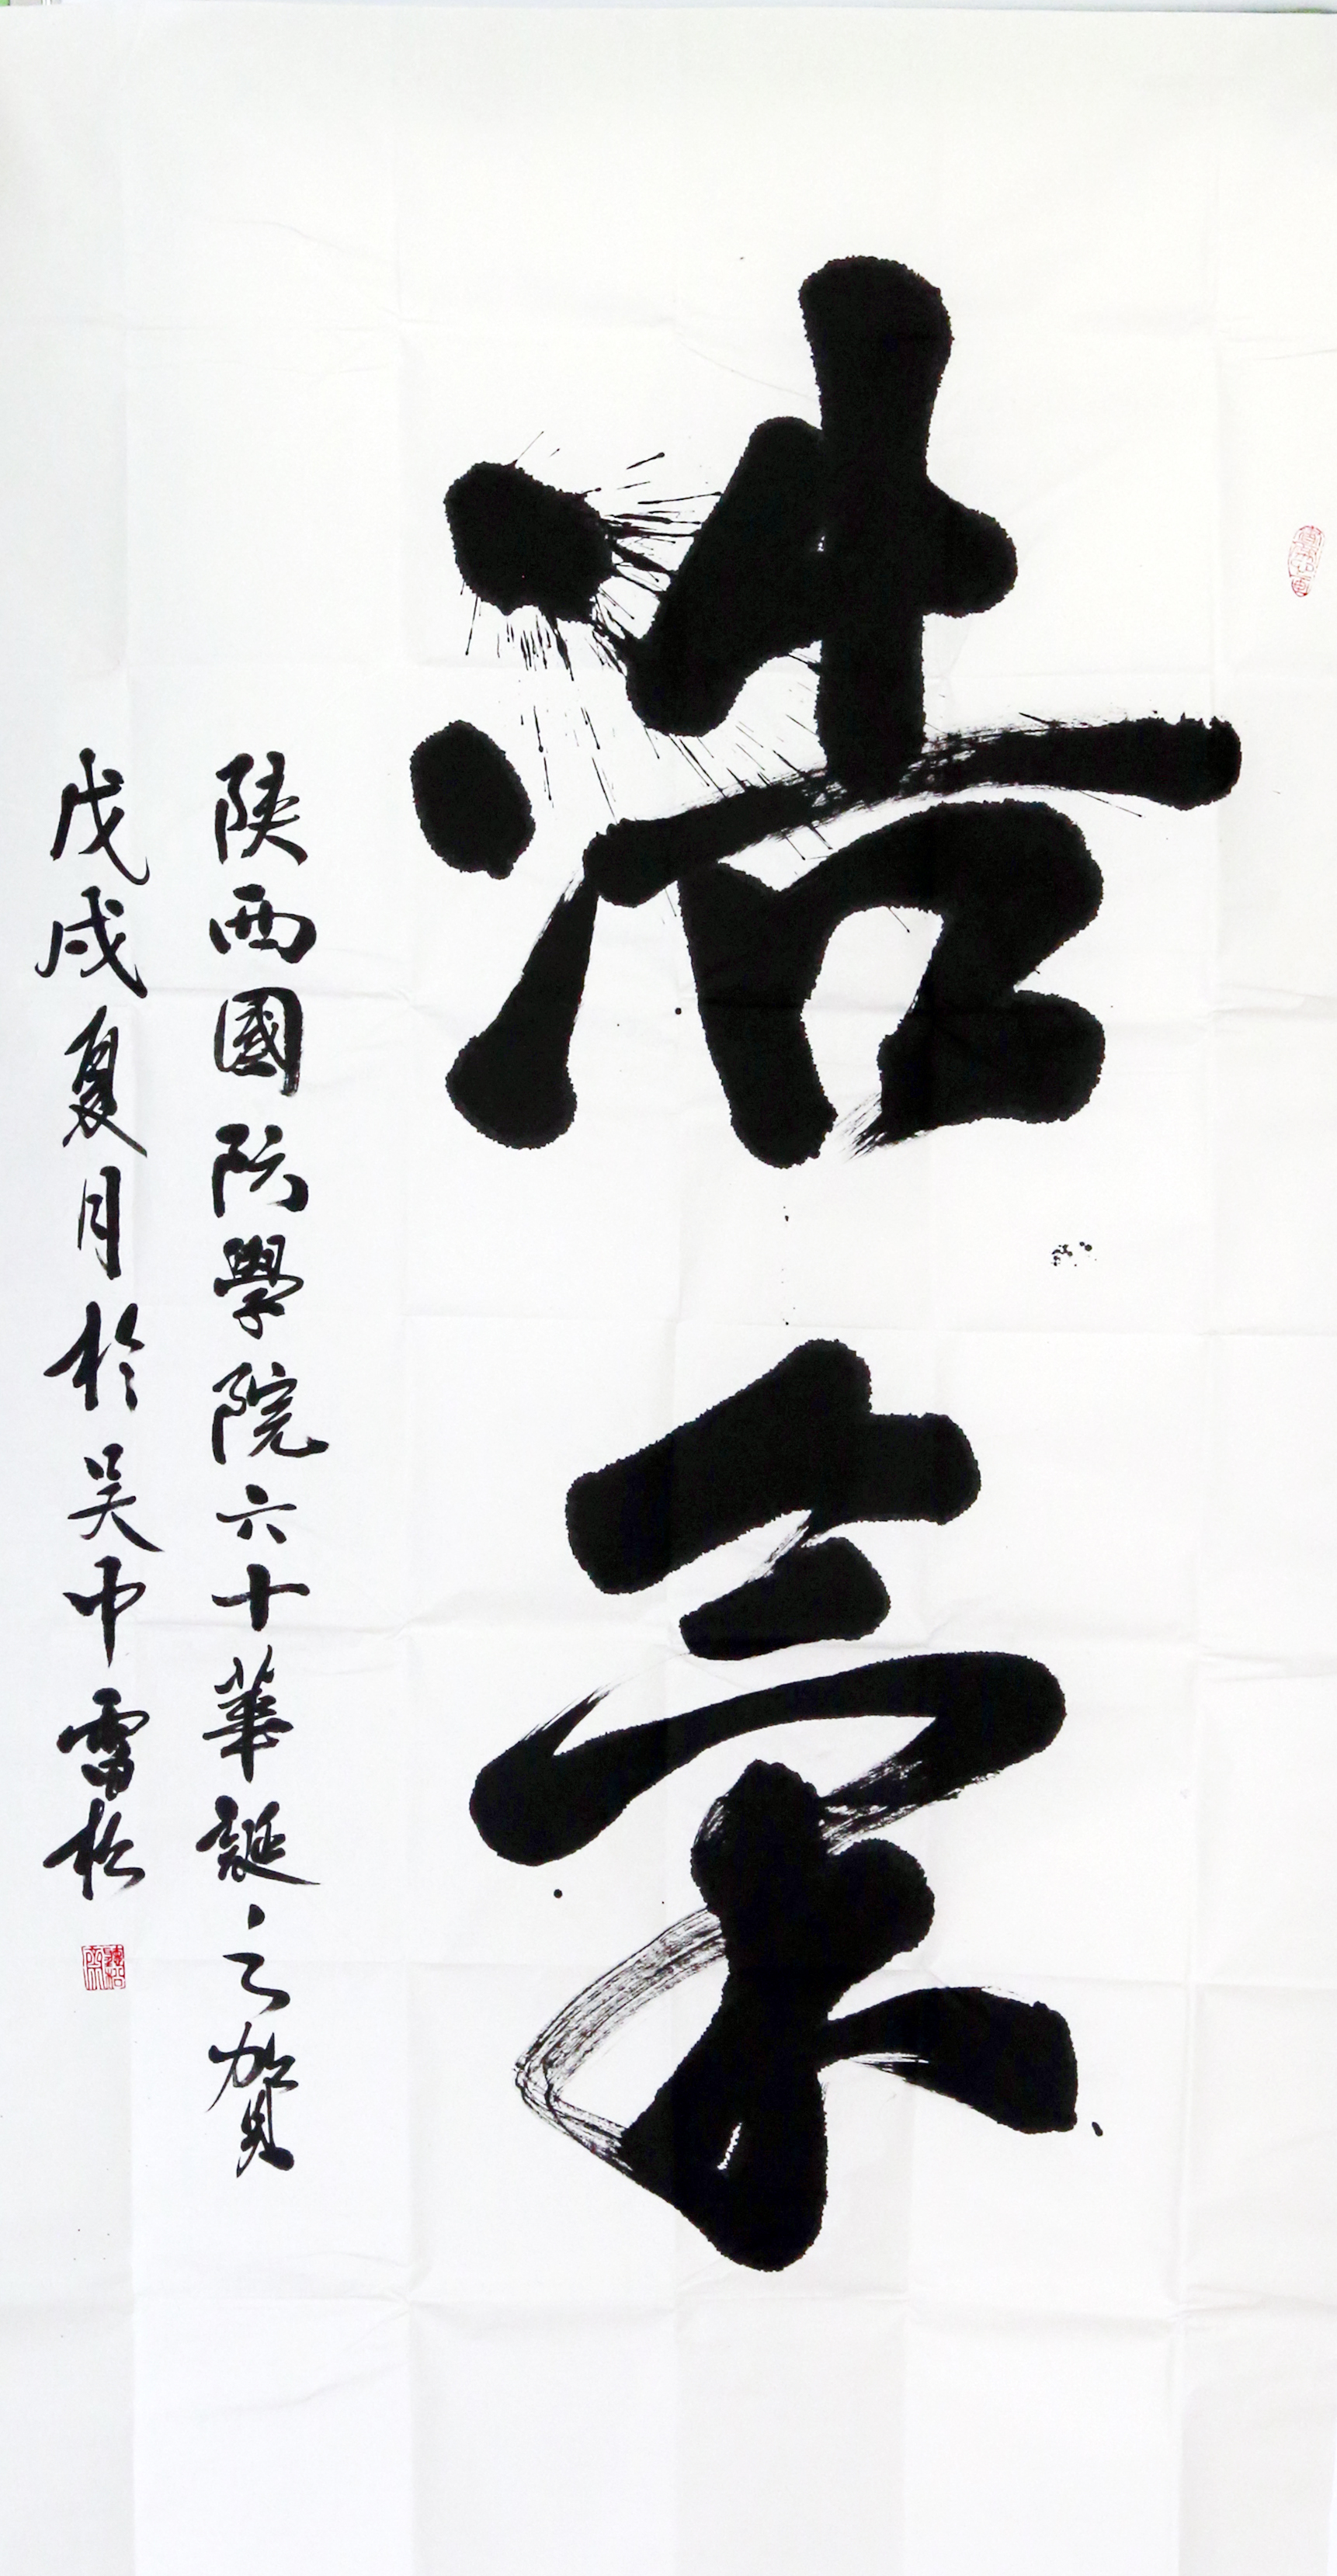 浩氣
陝西國防學院六十華誕之賀
戊戌夏月於吴中雷松